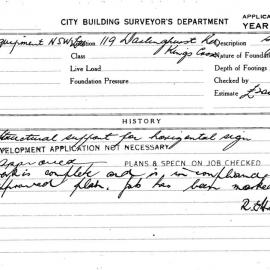 CITY BUILDING SURVEYOR'S DEPARTMENT
APPLICA
YEAR
quipment NSW Location 119 Darlinghurst Rd Description
Class Kings Cross Nature of Foundation
Live Load Depth of Footings
Foundation Pressure Checked by
Estimate
HISTORY
structural support for horizontal sign
DEVELOPMENT APPLICATION NOT NECESSARY
approved PLANS & SPECN ON JOB CHECKED
is complete and is in compliance
approved plan. Job has been marked